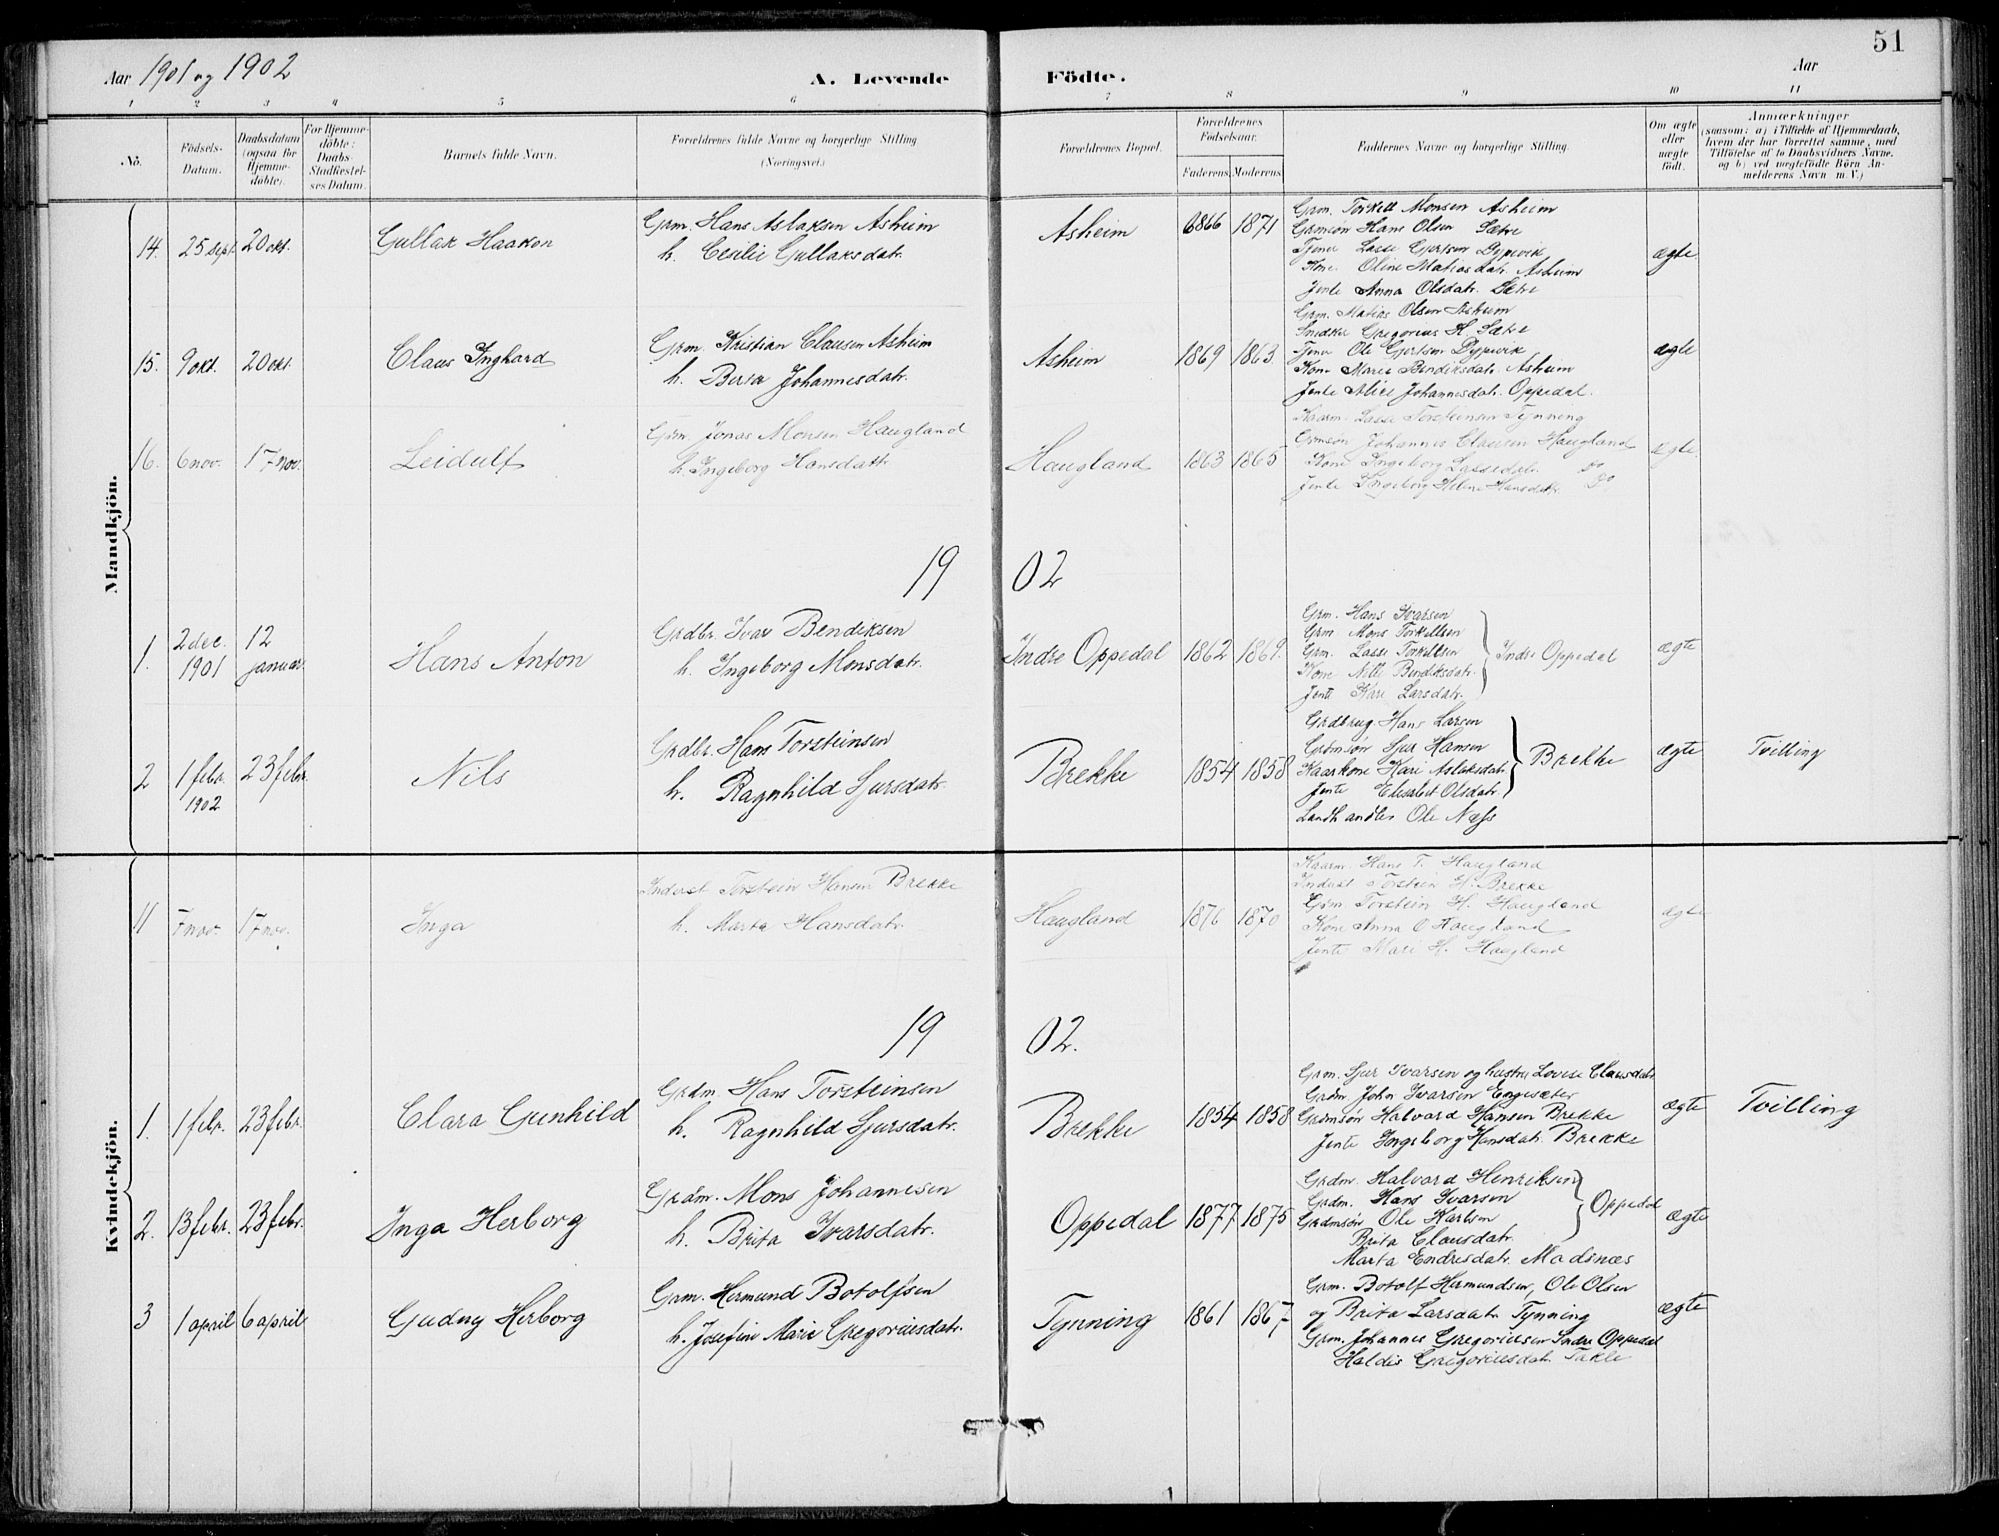 51
Aar 1901 og 1902 A. Levende Födte. Aar
1 2 3 4 5 6 7 8 9 10 11
No. Födsels-Datum. Daabsdatum (ogsaa for Hjemme-döbte). For Hjemme-döbte: Daabs-Stadfæstel-ses Datum. Barnets fulde Navn. Forældrenes fulde Navne og borgerlige Stilling (Næringsvei.) Forældrenes Bopæl. Forældrenes Födselsaar. Faderens Moderens Faddernes Navne og borgerlige Stilling. Om ægte eller uægte födt. Anmærkninger (saasom: a) i Tilfælde af Hjemmedaab, hvem der har forrettet samme, med Tilföielse af to Daabsvidners Navne, og b) ved uægtefödte Börn An-melderens Navn m. V.)
Mandkjön.
14. 25 sept. 20 okt. Gullak Haakon Grm. Hans Aslaksen Asheim Asheim 1866 1871 Grm. Torkell Monsen Asheim ægte
h. Cesilie Gullaksdatr. Grdmsøn Hans Olsen Sætre
Tjener Lasse Gjertsen Dypevik
Kone Oline Matiasdatr. Asheim
Jente Anna Olsdatr. Sætre
15. 9 okt. 20 okt. Claus Inghard Grm. Kristian Clausen Asheim Asheim 1869 1863 Grm. Matias Olsen Asheim ægte
h. Berta Johannesdatr. Snedker Gregorius H. Sætre
Tjener Ole Gjertsen Dypevik
Kone Marie Bendiksdatr. Asheim
Jente Alice Johannesdatr. Oppedal.
16. 6 nov. 17 nov. Leidulf Grm. Jonas Monsen Haugland Haugland 1863 1865 Kaarm. Lasse Torsteinsen Tynning ægte.
h. Ingeborg Hansdatr Grmsøn Johannes Clausen Haugland
Kone Ingeborg Lassedatr. Do
Jente Ingeborg Helene Hansdatr. Do
1902
1. 2 dec. 1901 12 januar. Hans Anton Grdbr. Ivar Bendiksen Indre Oppedal 1862 1869. Grm. Hans Ivarsen ægte
h. Ingeborg Monsdatr. Grm Mons Torkellsen
Grm. Lasse Torkellsen Indre Oppedal
Kone Nille Bendiksdatr.
Jente Kari Larsdatr.
2 1 febr. 1902 23 febr. Nils Grdbr. Hans Torsteinsen Brekke 1854 1858 Grdbrug. Hans Larsen ægte Tvilling
h. Ragnhild Sjursdatr. Grdmsøn Sjur Hansen
Kaarkone Kari Aslaksdatr Brekke
Jente Elisabet Olsdatr.
Landhandler Ole Næss
Kvindekjön.
11 7 nov. 17 nov. Inga Inderst Torstein Hansen Brekke Haugland 1876 1870 Kaarm. Hans T. Haugland ægte
h. Marta Hansdatr. Inderst Torstein H. Brekke
Grm. Torstein H. Haugland
Kone Anna O Haugland
Jente Mari H. Haugland
1902.
1. 1 febr. 23 febr. Clara Gunhild Grdm. Hans Torsteinsen Brekke 1854 1858 Grm. Sjur Ivarsen og hustru Lovise Clausdatr ægte Tvilling
h. Ragnhild Sjursdatr. Grdm. John Ivarsen Engesæter
Grdmsøn Halvard Hansen Brekke
Jente Ingeborg Hansdatr. Brekke
2. 13 febr. 23 febr. Inga Herborg Grdm. Mons Johannesen Oppedal 1877 1875 Grdm. Halvard Henriksen ægte
h. Brita Ivarsdatr. Grdm. Hans Ivarsen Oppedal
Grdmsøn Ole Karlsen
Brita Clausdatr.
Marta Endresdatr. Madsnæs
3 1 april 6 april Gudny Herborg Grm. Hermund Botolfsen Tynning 1861 1867 Grm. Botolf Hermundsen, Ole Olsen ægte
h. Josefine Marie Gregoriusdatr. og Brita Larsdatr Tynning
Grm. Johannes Gregoriussen Indre Oppedal
Haldis Gregoriusdatr. Takle